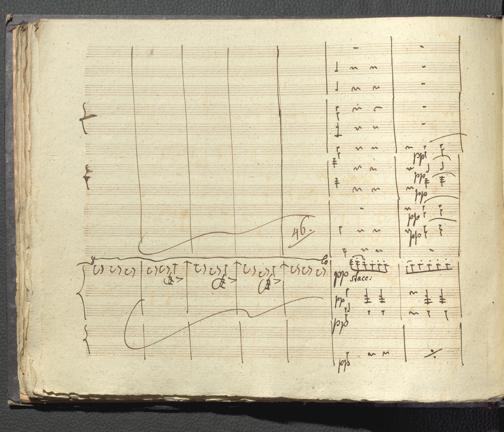 pp
pp
pp
pp
46.
pp stacc:
pp
pp
pp